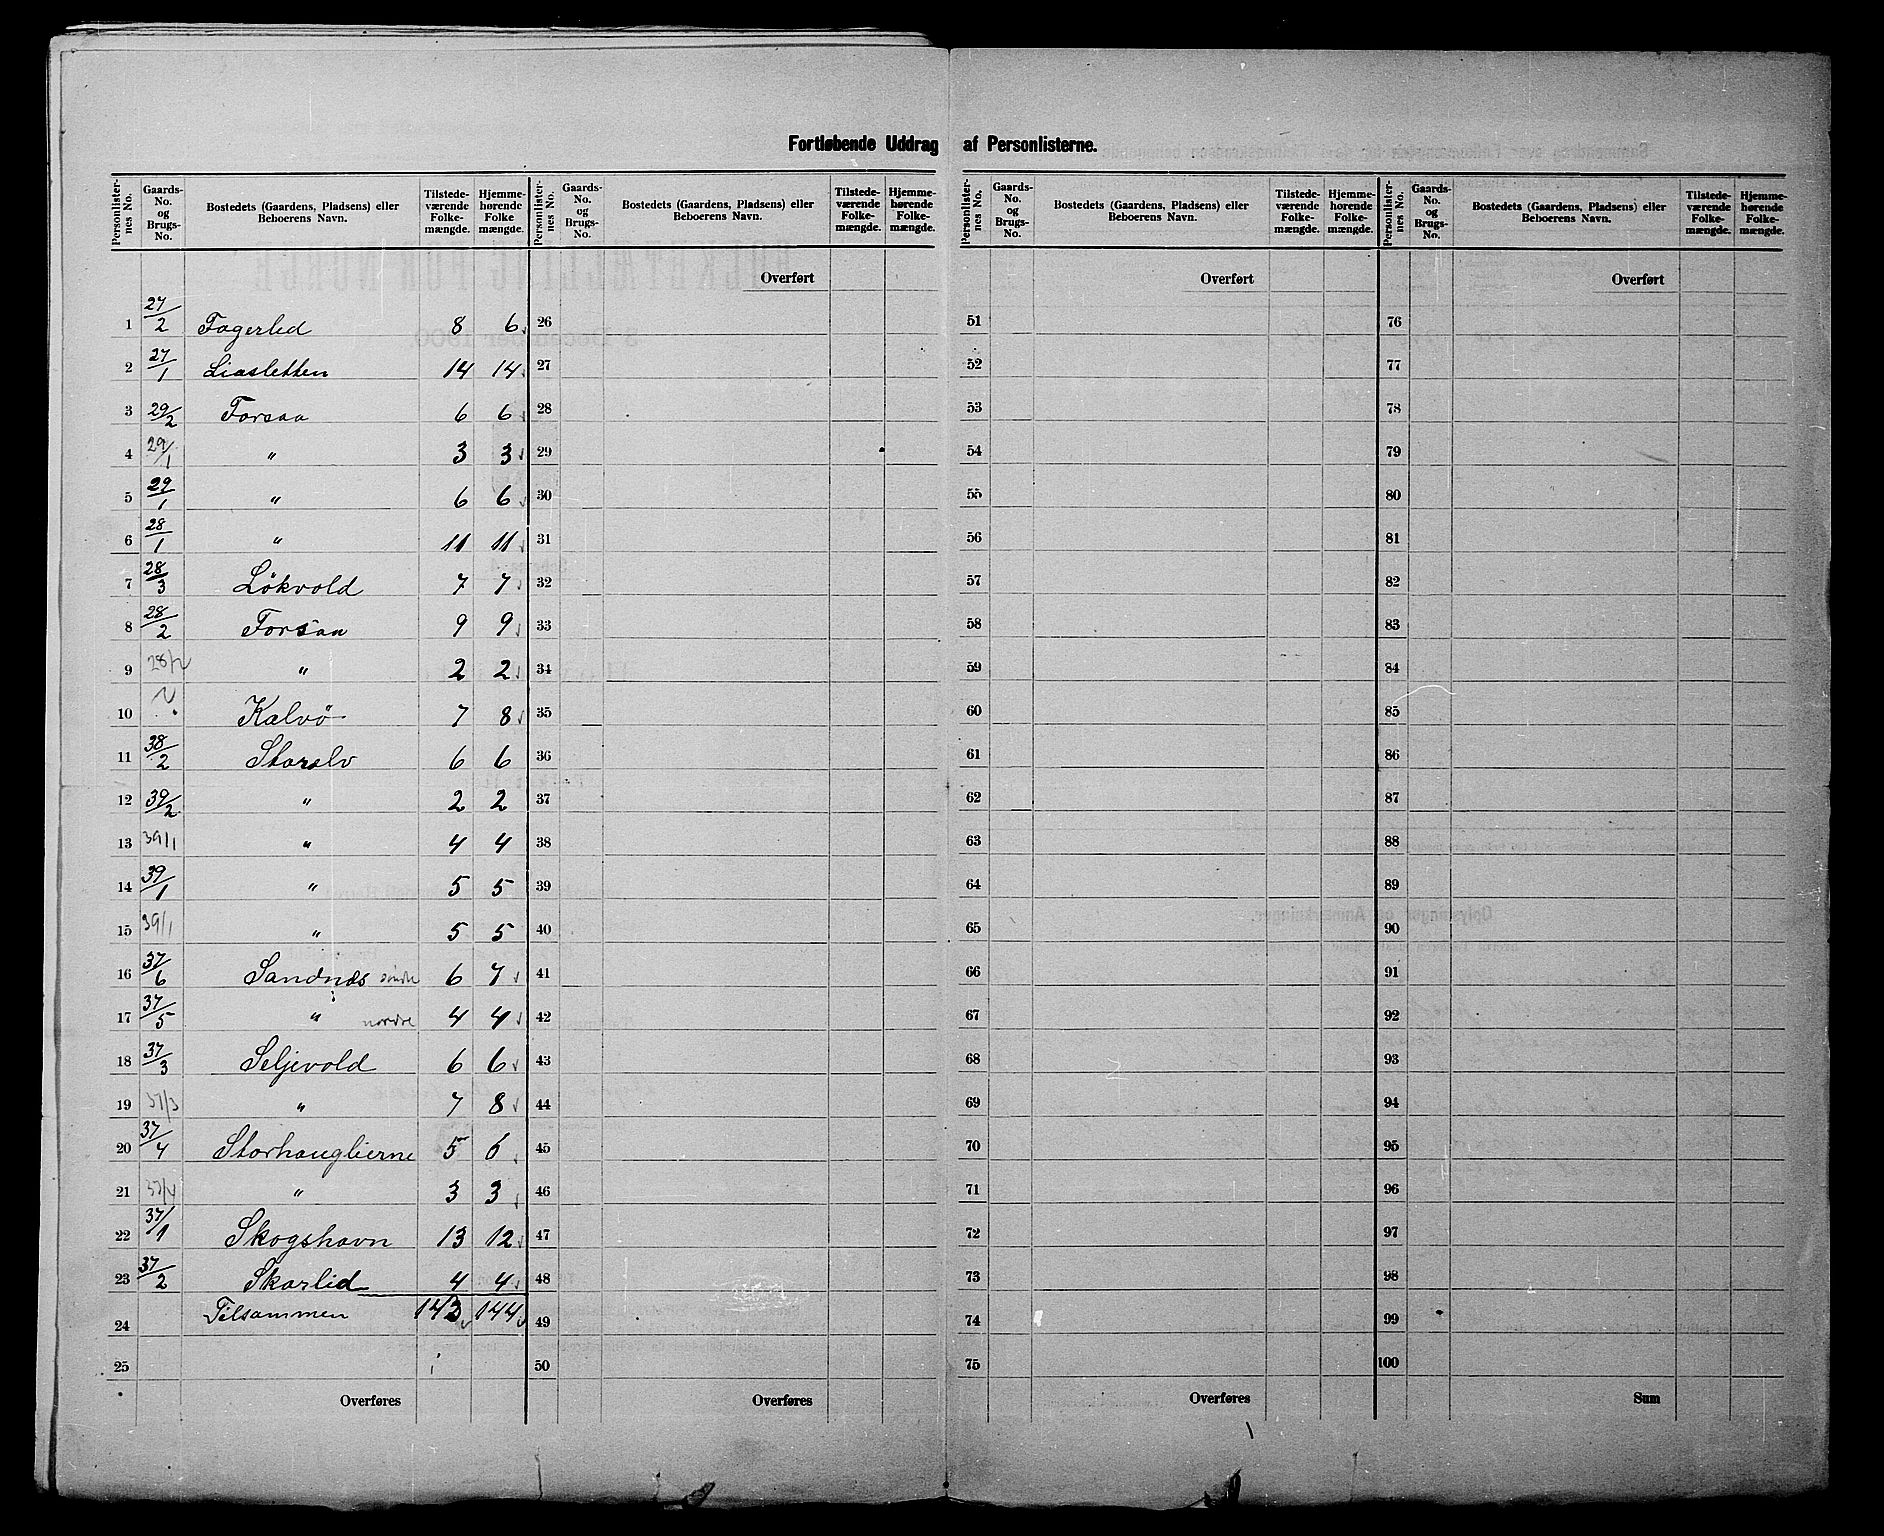 Fortløbende Uddrag af Personlisterne.
Personlister-nes No. | Gaards-No. og Brugs-No. | Bostedets (Gaardens, Pladsens) eller Beboerens Navn. | Tilstede-værende Folke-mængde. | Hjemme-hørende Folke mængde.
1 27/2 Fagerlid 8 6
2 27/1 Liasletten 14 14
3 29/2 Forsaa 6 6
4 29/1 " 3 3
5 29/1 " 6 6
6 28/1 " 11 11
7 28/3 Løkvold 7 7
8 28/2 Forsaa 9 9
9 28/2 " 2 2
10 Kalvö 7 8
11 38/2 Storelv 6 6
12 39/2 " 2 2
13 39/1 " 4 4
14 39/1 " 5 5
15 39/1 " 5 5
16 37/6 Sandnæs søndre 6 7
17 37/5 " nordre 4 4
18 37/3 Seljevold 6 6
19 37/3 " 7 8
20 37/4 Storhauglierne 5 6
21 37/4 " 3 3
22 37/1 Skogshavn 13 12
23 37/2 Skarlid 4 4
24 Tilsammen 143 144
25
Overføres
Personlister-nes No. | Gaards-No. og Brugs-No. | Bostedets (Gaardens, Pladsens) eller Beboerens Navn. | Tilstede-værende Folke-mængde. | Hjemme-hørende Folke-mængde.
Overført
26
27
28
29
30
31
32
33
34
35
36
37
38
39
40
41
42
43
44
45
46
47
48
49
50
Overføres
Personlister-nes No. | Gaards-No. og Brugs-No. | Bostedets (Gaardens, Pladsens) eller Beboerens Navn. | Tilstede-værende Folke-mængde. | Hjemme-hørende Folke-mængde.
Overført
51
52
53
54
55
56
57
58
59
60
61
62
63
64
65
66
67
68
69
70
71
72
73
74
75
Overføres
Personlister-nes No. | Gaards-No. og Brugs-No. | Bostedets (Gaardens, Pladsens) eller Beboerens Navn. | Tilstede-værende Folke-mængde. | Hjemme-hørende Folke-mængde.
Overført
76
77
78
79
80
81
82
83
84
85
86
87
88
89
90
91
92
93
94
95
96
97
98
99
100
Sum